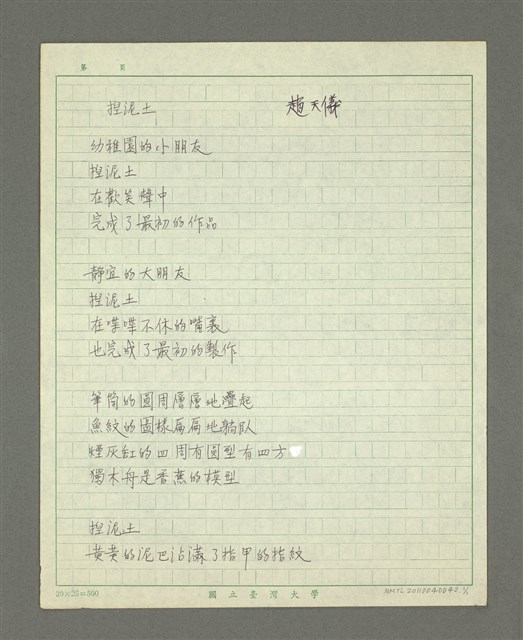 第 頁
捏泥土 趙天儀
幼稚園的小朋友
捏泥土
在歡笑聲中
完成了最初的作品
靜宜的大朋友
捏泥土
在喋喋不休的嘴裏
也完成了最初的製作
筆筒的圓周層層地疊起
魚紋的圖樣扁扁地躺臥
煙灰缸的四周有圓型有四方
獨木舟是香蕉的模型
捏泥土
黃黃的泥巴沾滿了指甲的指紋
20×25=500 國立臺灣大學 NMTL20110040042 1/1